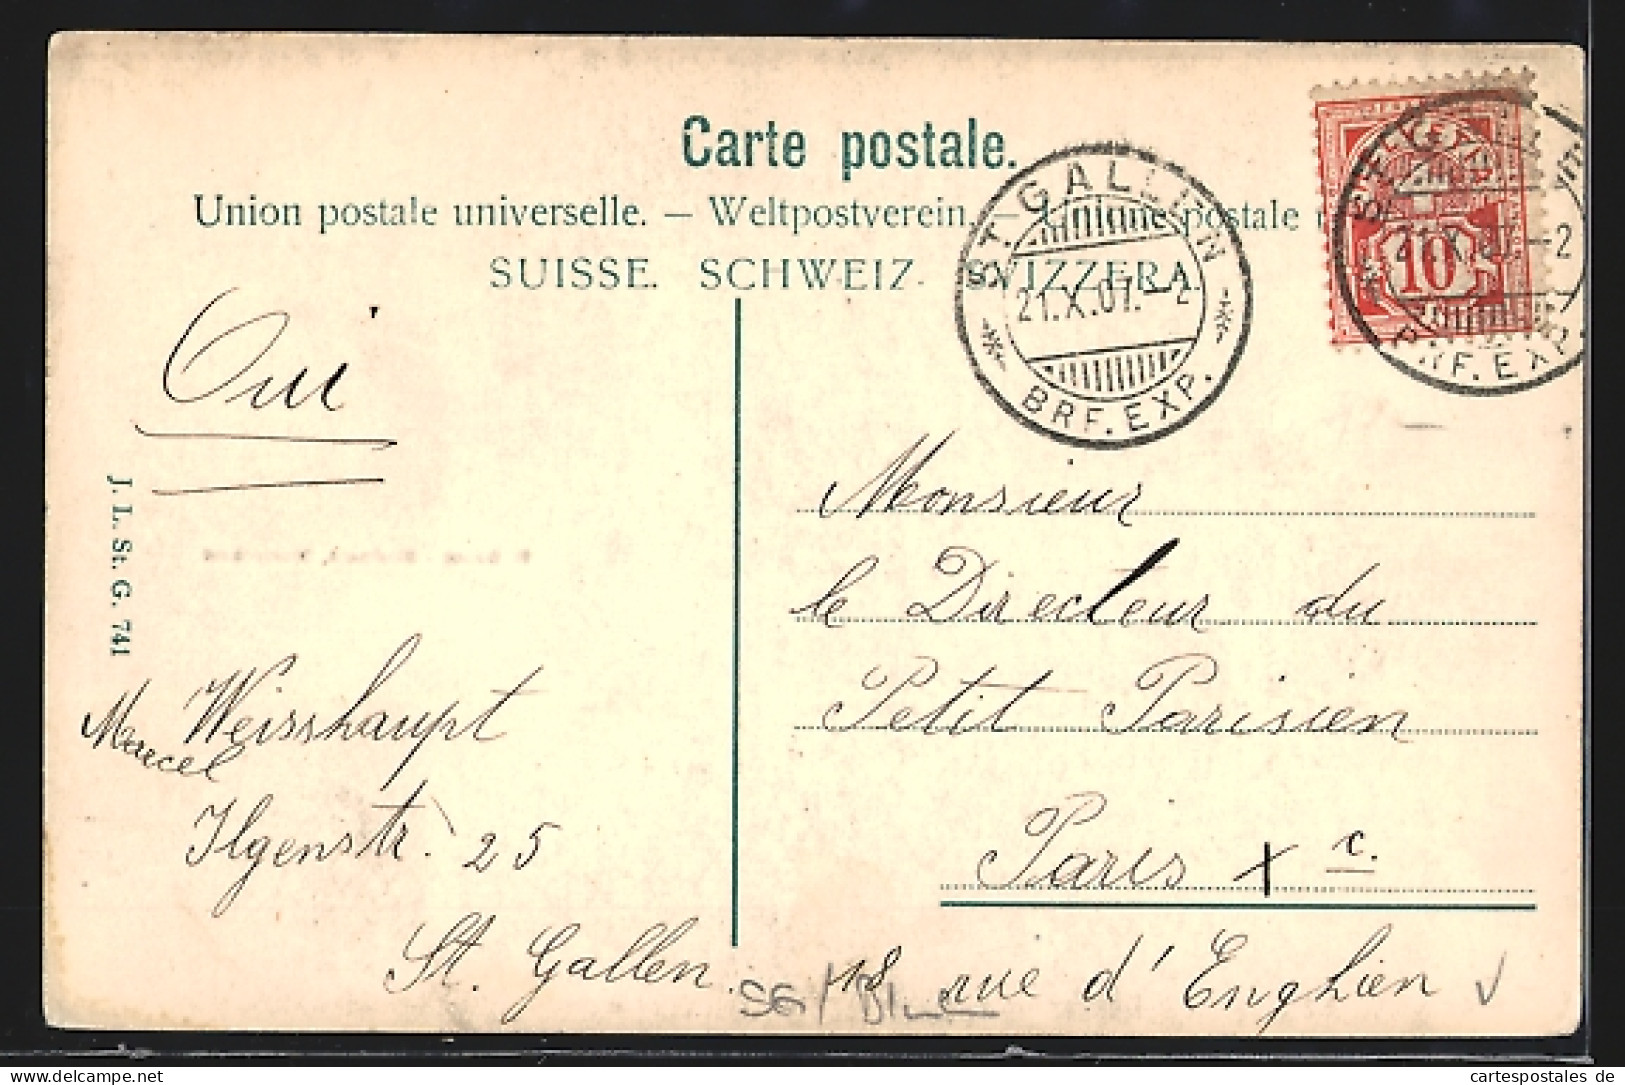 Carte postale.
Union postale universelle. — Weltpostverein. — Unione postale
SUISSE. SCHWEIZ. SVIZZERA.
ST. GALLEN
21.X.07.–2
BRF. EXP.
10
ST. GALLEN
21.X.07.–2
BRF. EXP.
Oui
J. L. St. G. 741
Marcel Weisshaupt
Ilgenstr. 25
St. Gallen.
Monsieur
le Directeur du
Petit Parisien
Paris X e.
18 rue d'Enghien
SG/
cartespostales de